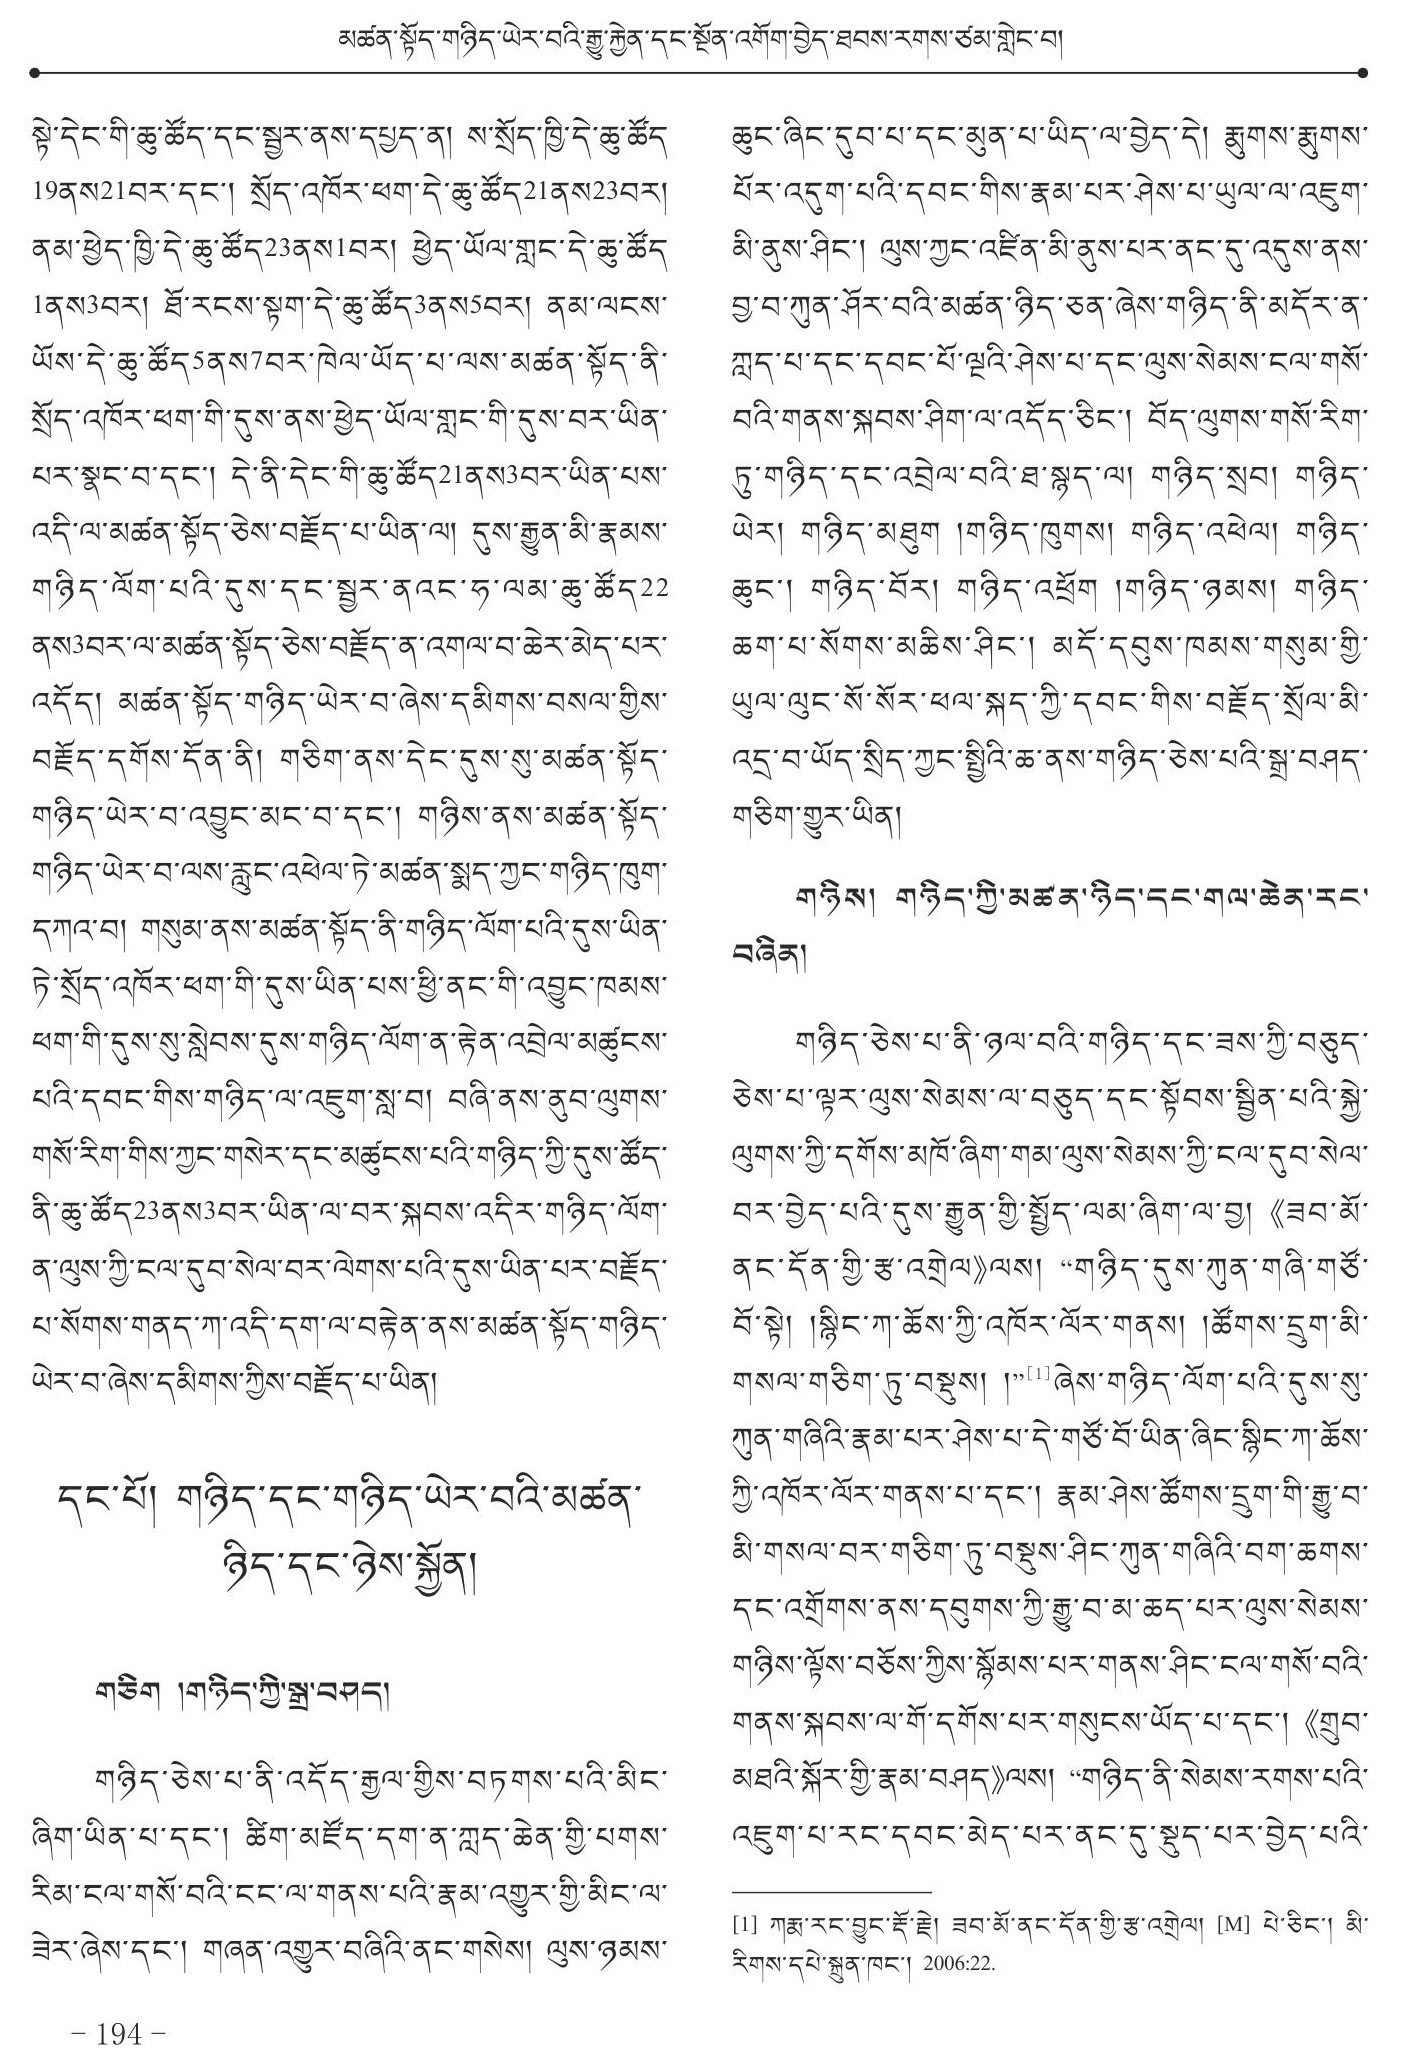 མཚན་སྟོད་གཉིད་ཡེར་བའི་རྒྱུ་རྐྱེན་དང་སྔོན་འགོག་བྱེད་ཐབས་རགས་ཙམ་གླེང་བ།
སྟེ་དེང་གི་ཆུ་ཚོད་དང་སྦྱར་ནས་དཔྱད་ན། ས་སྲོད་ཁྱི་དེ་ཆུ་ཚོད
19ནས21བར་དང་། སྲོད་འཁོར་ཕག་དེ་ཆུ་ཚོད21ནས23བར།
ནམ་ཕྱེད་ཁྱི་དེ་ཆུ་ཚོད23ནས1བར། ཕྱེད་ཡོལ་གླང་དེ་ཆུ་ཚོད
1ནས3བར། ཐོ་རངས་སྟག་དེ་ཆུ་ཚོད3ནས5བར། ནམ་ལངས་
ཡོས་དེ་ཆུ་ཚོད5ནས7བར་ཁེལ་ཡོད་པ་ལས་མཚན་སྟོད་ནི་
སྲོད་འཁོར་ཕག་གི་དུས་ནས་ཕྱེད་ཡོལ་གླང་གི་དུས་བར་ཡིན་
པར་སྣང་བ་དང་། དེ་ནི་དེང་གི་ཆུ་ཚོད21ནས3བར་ཡིན་པས་
འདི་ལ་མཚན་སྟོད་ཅེས་བརྗོད་པ་ཡིན་ལ། དུས་རྒྱུན་མི་རྣམས་
གཉིད་ལོག་པའི་དུས་དང་སྦྱར་ནའང་ཧ་ལམ་ཆུ་ཚོད22
ནས3བར་ལ་མཚན་སྟོད་ཅེས་བརྗོད་ན་འགལ་བ་ཆེར་མེད་པར་
འདོད། མཚན་སྟོད་གཉིད་ཡེར་བ་ཞེས་དམིགས་བསལ་གྱིས་
བརྗོད་དགོས་དོན་ནི། གཅིག་ནས་དེང་དུས་སུ་མཚན་སྟོད་
གཉིད་ཡེར་བ་འབྱུང་མང་བ་དང་། གཉིས་ནས་མཚན་སྟོད་
གཉིད་ཡེར་བ་ལས་རླུང་འཕེལ་ཏེ་མཚན་སྨད་ཀྱང་གཉིད་ཁུག་
དཀའ་བ། གསུམ་ནས་མཚན་སྟོད་ནི་གཉིད་ལོག་པའི་དུས་ཡིན་
ཏེ་སྲོད་འཁོར་ཕག་གི་དུས་ཡིན་པས་ཕྱི་ནང་གི་འབྱུང་ཁམས་
ཕག་གི་དུས་སུ་སླེབས་དུས་གཉིད་ལོག་ན་རྟེན་འབྲེལ་མཚུངས་
པའི་དབང་གིས་གཉིད་ལ་འཇུག་སླ་བ། བཞི་ནས་ནུབ་ལུགས་
གསོ་རིག་གིས་ཀྱང་གསེར་དང་མཚུངས་པའི་གཉིད་ཀྱི་དུས་ཚོད་
ནི་ཆུ་ཚོད23ནས3བར་ཡིན་ལ་བར་སྐབས་འདིར་གཉིད་ལོག་
ན་ལུས་ཀྱི་ངལ་དུབ་སེལ་བར་ལེགས་པའི་དུས་ཡིན་པར་བརྗོད་
པ་སོགས་གནད་ཀ་འདི་དག་ལ་བརྟེན་ནས་མཚན་སྟོད་གཉིད་
ཡེར་བ་ཞེས་དམིགས་ཀྱིས་བརྗོད་པ་ཡིན།
དང་པོ། གཉིད་དང་གཉིད་ཡེར་བའི་མཚན་
ཉིད་དང་ཉེས་སྐྱོན།
གཅིག །གཉིད་ཀྱི་སྒྲ་བཤད།
གཉིད་ཅེས་པ་ནི་འདོད་རྒྱལ་གྱིས་བཏགས་པའི་མིང་
ཞིག་ཡིན་པ་དང་། ཚིག་མཛོད་དག་ན་ཀླད་ཆེན་གྱི་པགས་
རིམ་ངལ་གསོ་བའི་ངང་ལ་གནས་པའི་རྣམ་འགྱུར་གྱི་མིང་ལ་
ཟེར་ཞེས་དང་། གཞན་འགྱུར་བཞིའི་ནང་གསེས། ལུས་ཉམས་
ཆུང་ཞིང་དུབ་པ་དང་མུན་པ་ཡིད་ལ་བྱེད་དེ། རྨུགས་རྨུགས་
པོར་འདུག་པའི་དབང་གིས་རྣམ་པར་ཤེས་པ་ཡུལ་ལ་འཇུག་
མི་ནུས་ཤིང་། ལུས་ཀྱང་འཛིན་མི་ནུས་པར་ནང་དུ་འདུས་ནས་
བྱ་བ་ཀུན་ཤོར་བའི་མཚན་ཉིད་ཅན་ཞེས་གཉིད་ནི་མདོར་ན་
ཀླད་པ་དང་དབང་པོ་ལྔའི་ཤེས་པ་དང་ལུས་སེམས་ངལ་གསོ་
བའི་གནས་སྐབས་ཤིག་ལ་འདོད་ཅིང་། བོད་ལུགས་གསོ་རིག་
ཏུ་གཉིད་དང་འབྲེལ་བའི་ཐ་སྙད་ལ། གཉིད་སྲབ། གཉིད་
ཡེར། གཉིད་མཐུག །གཉིད་ཁུགས། གཉིད་འཕེལ། གཉིད་
ཆུང་། གཉིད་བོར། གཉིད་འཕྲོག །གཉིད་ཉམས། གཉིད་
ཆག་པ་སོགས་མཆིས་ཤིང་། མདོ་དབུས་ཁམས་གསུམ་གྱི་
ཡུལ་ལུང་སོ་སོར་ཕལ་སྐད་ཀྱི་དབང་གིས་བརྗོད་སྲོལ་མི་
འདྲ་བ་ཡོད་སྲིད་ཀྱང་སྤྱིའི་ཆ་ནས་གཉིད་ཅེས་པའི་སྒྲ་བཤད་
གཅིག་གྱུར་ཡིན།
གཉིས། གཉིད་ཀྱི་མཚན་ཉིད་དང་གལ་ཆེན་རང་
བཞིན།
གཉིད་ཅེས་པ་ནི་ཉལ་བའི་གཉིད་དང་ཟས་ཀྱི་བཅུད་
ཅེས་པ་ལྟར་ལུས་སེམས་ལ་བཅུད་དང་སྟོབས་སྦྱིན་པའི་སྐྱེ་
ལུགས་ཀྱི་དགོས་མཁོ་ཞིག་གམ་ལུས་སེམས་ཀྱི་ངལ་དུབ་སེལ་
བར་བྱེད་པའི་དུས་རྒྱུན་གྱི་སྤྱོད་ལམ་ཞིག་ལ་བྱ། 《ཟབ་མོ་
ནང་དོན་གྱི་རྩ་འགྲེལ》ལས། “གཉིད་དུས་ཀུན་གཞི་གཙོ་
བོ་སྟེ། །སྙིང་ཀ་ཆོས་ཀྱི་འཁོར་ལོར་གནས། །ཚོགས་དྲུག་མི་
གསལ་གཅིག་ཏུ་བསྡུས། །”[1]ཞེས་གཉིད་ལོག་པའི་དུས་སུ་
ཀུན་གཞིའི་རྣམ་པར་ཤེས་པ་དེ་གཙོ་བོ་ཡིན་ཞིང་སྙིང་ཀ་ཆོས་
ཀྱི་འཁོར་ལོར་གནས་པ་དང་། རྣམ་ཤེས་ཚོགས་དྲུག་གི་རྒྱུ་བ་
མི་གསལ་བར་གཅིག་ཏུ་བསྡུས་ཤིང་ཀུན་གཞིའི་བག་ཆགས་
དང་འགྲོགས་ནས་དབུགས་ཀྱི་རྒྱུ་བ་མ་ཆད་པར་ལུས་སེམས་
གཉིས་ལྟོས་བཅོས་ཀྱིས་སྙོམས་པར་གནས་ཤིང་ངལ་གསོ་བའི་
གནས་སྐབས་ལ་གོ་དགོས་པར་གསུངས་ཡོད་པ་དང་། 《གྲུབ་
མཐའི་སྐོར་གྱི་རྣམ་བཤད》ལས། “གཉིད་ནི་སེམས་རགས་པའི་
འཇུག་པ་རང་དབང་མེད་པར་ནང་དུ་སྡུད་པར་བྱེད་པའི་
[1] ཀརྨ་རང་བྱུང་རྡོ་རྗེ། ཟབ་མོ་ནང་དོན་གྱི་རྩ་འགྲེལ། [M] པེ་ཅིང་། མི་
རིགས་དཔེ་སྐྲུན་ཁང་། 2006:22.
– 194 –